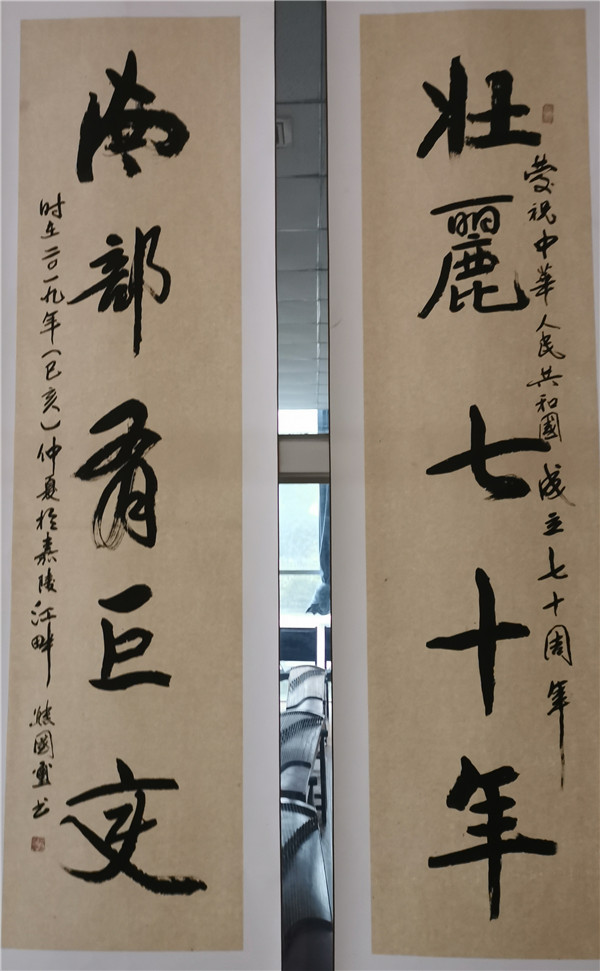 壮麗七十年
慶祝中華人民共和國成立七十周年
南部有巨变
时在二〇一九年(己亥)仲夏於嘉陵江畔 國 书